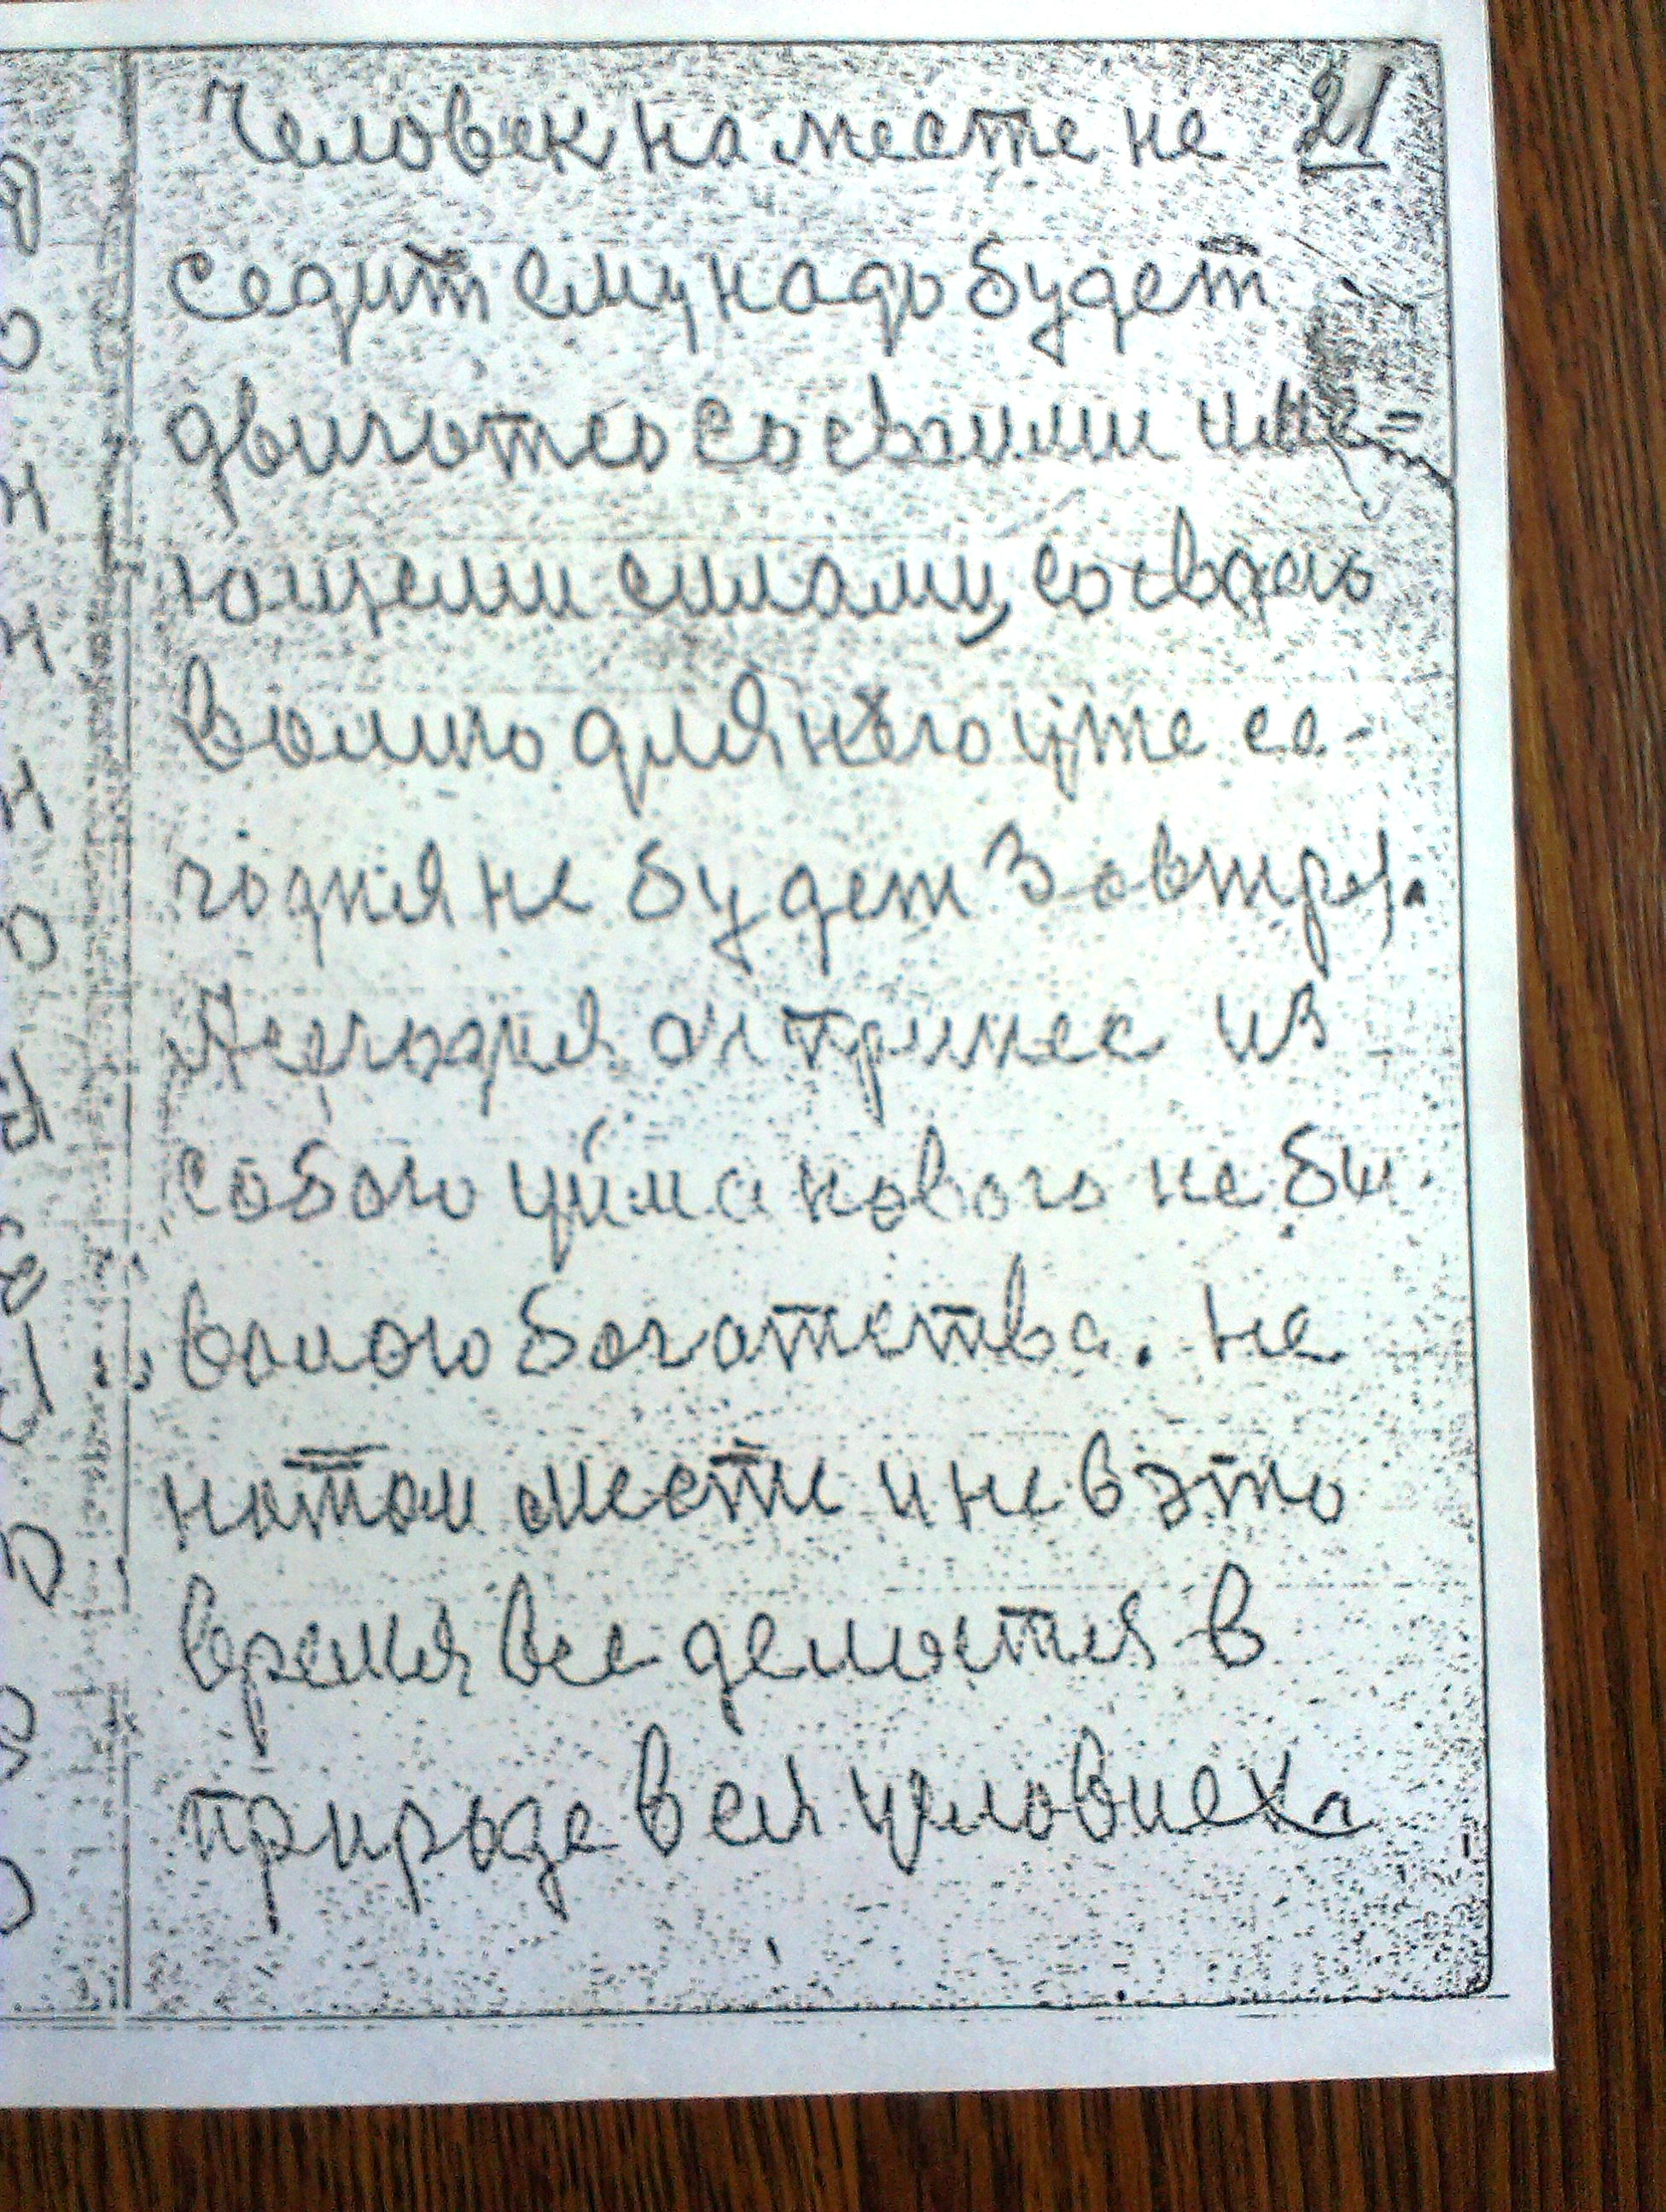 Человек на месте не 21
седит ему надо будет
двигатся со своими име-
ющеми силами, со своею
волию для него уже се-
годня не будет завтря.
А сегодня он принес из
собою уйма нового не бы
валою богатства. не
на том месте и не в это
время все делается в
природе вся человиека